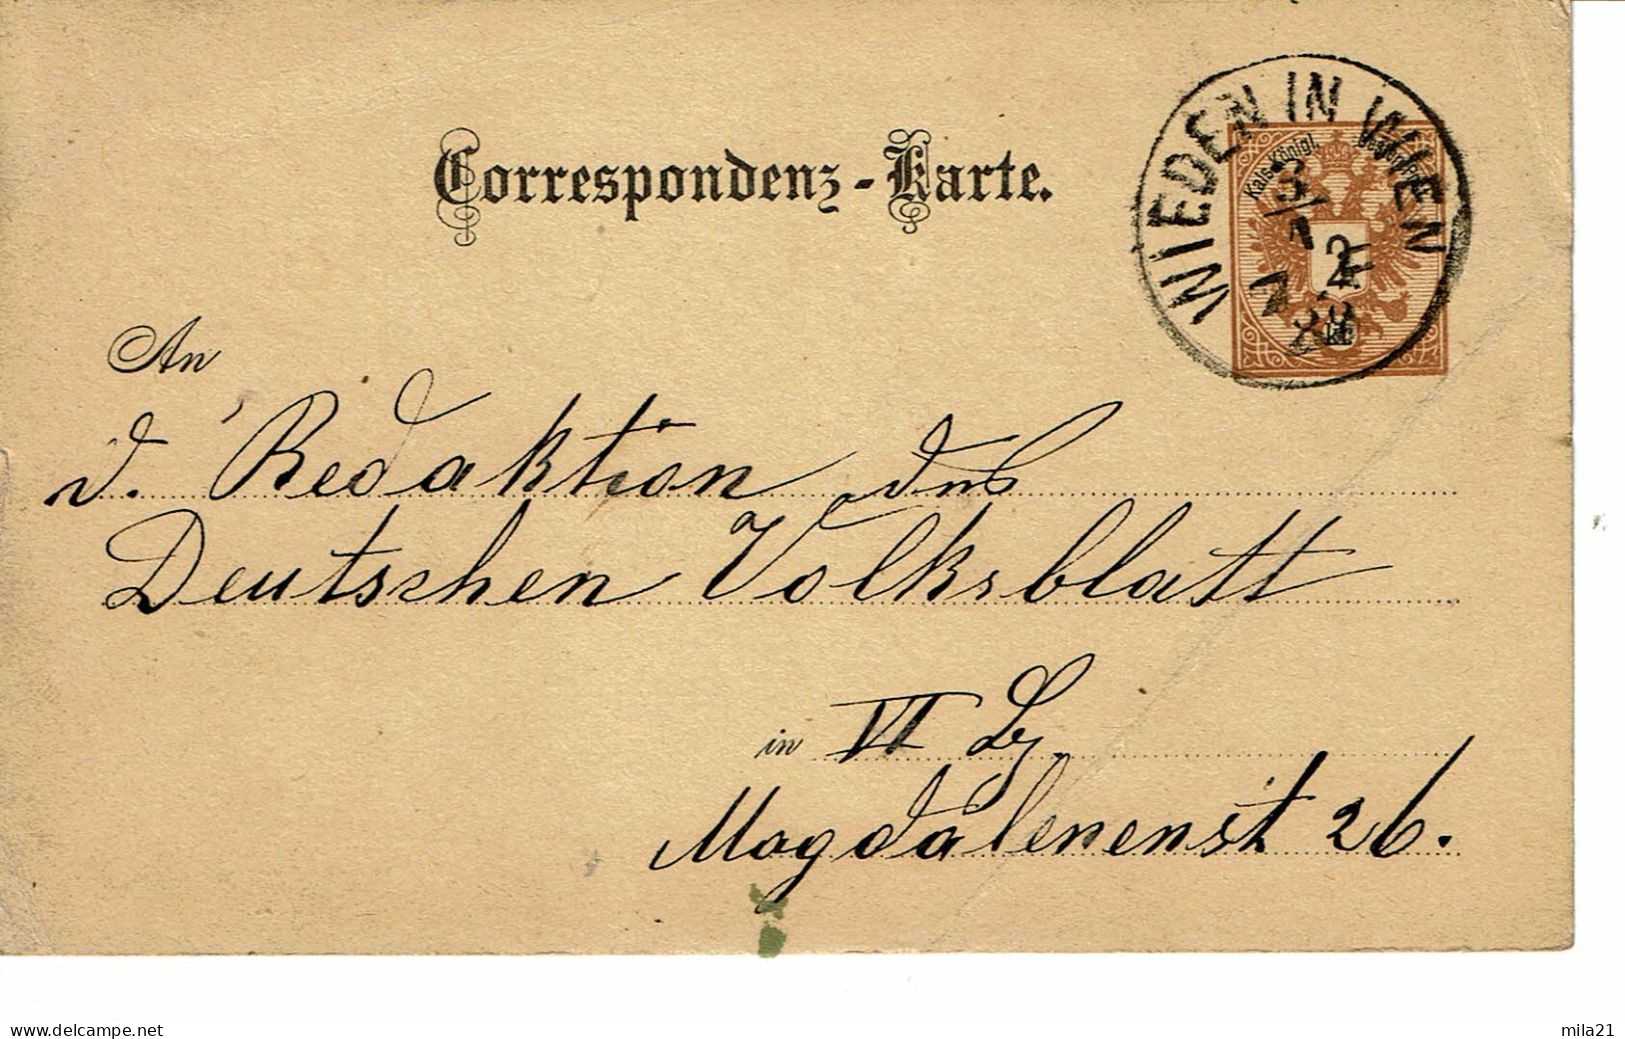 WIEDEN IN WIEN
Kais. Königl.
3/1
2
kr.
Correspondenz-Karte.
An
d. Redaktion des
Deutschen Volksblatt
in VI Bz.
Magdalenenst 26.
www.delcampe.net
mila21